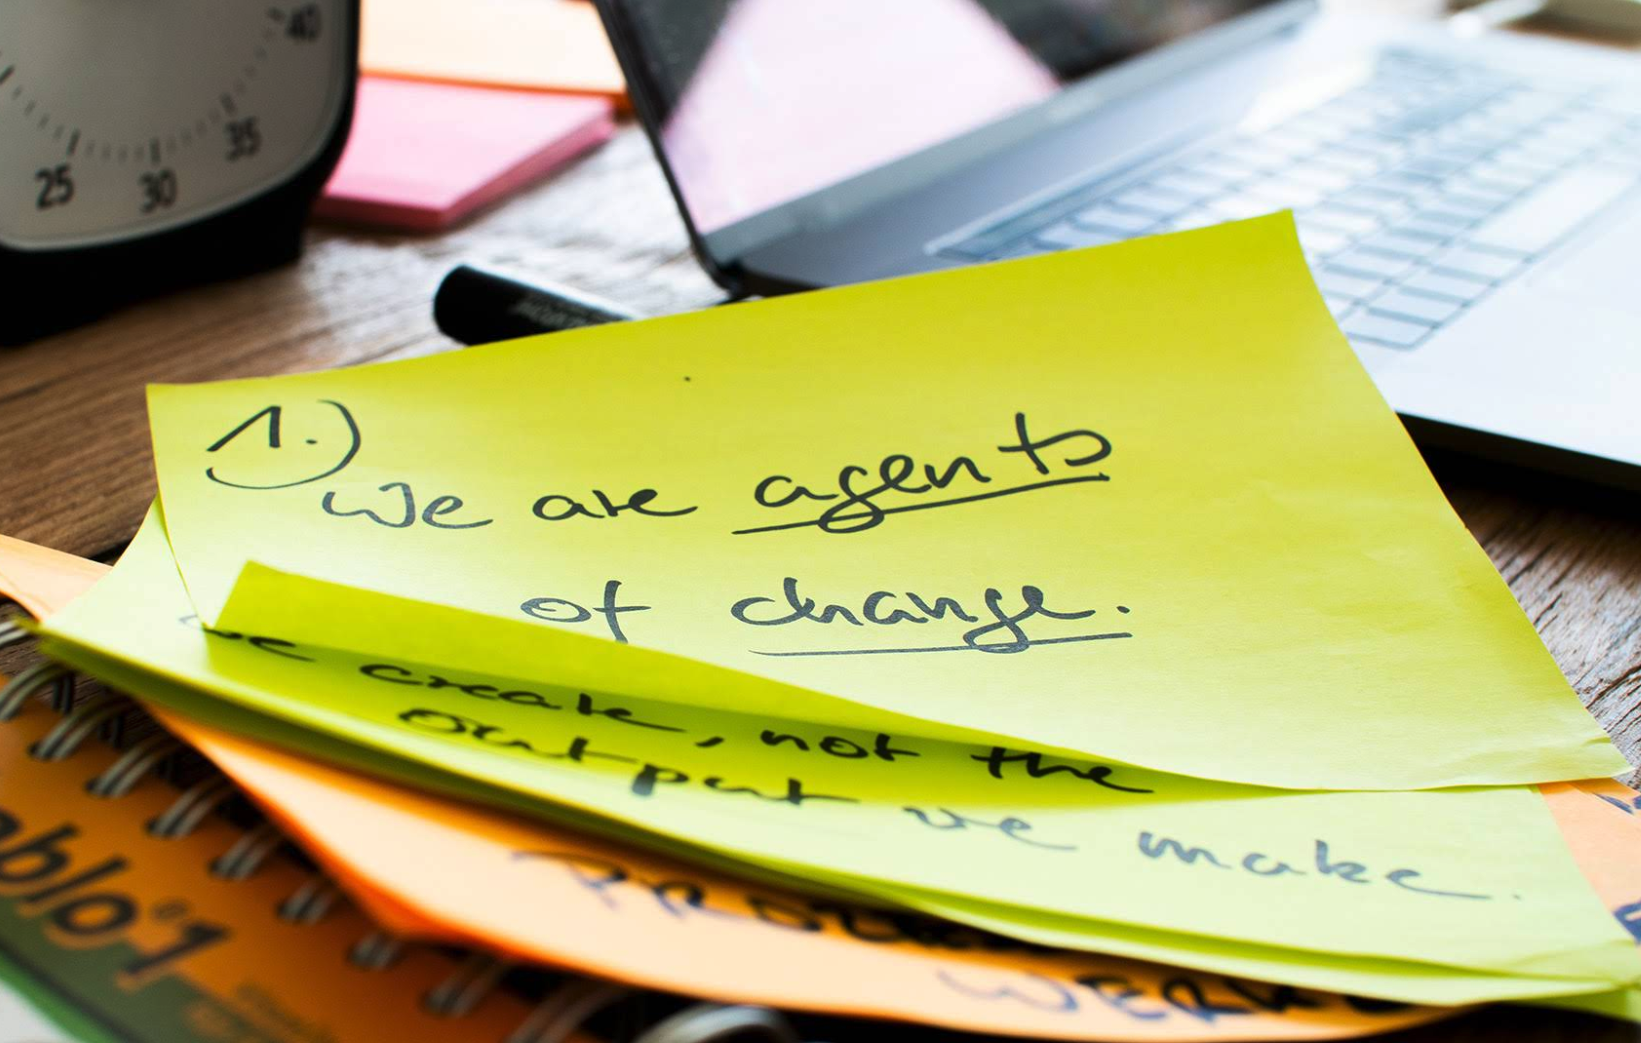 40
35
30
25
1.)
We are agents
of change.
we create, not the
output we make.
ablo°1